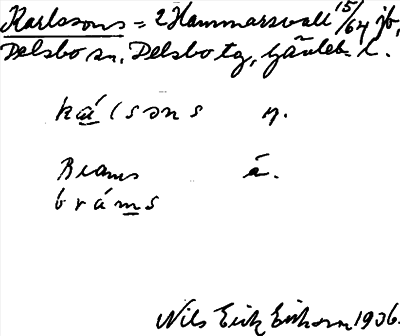 Karlssons = 2 Hammarsvall 15/64 jb,
Delsbo sn, Delsbo tg, Gävleb. l.
kálsəns y.
Brams å.
bráms
Nils Eric Eriksson 1936.